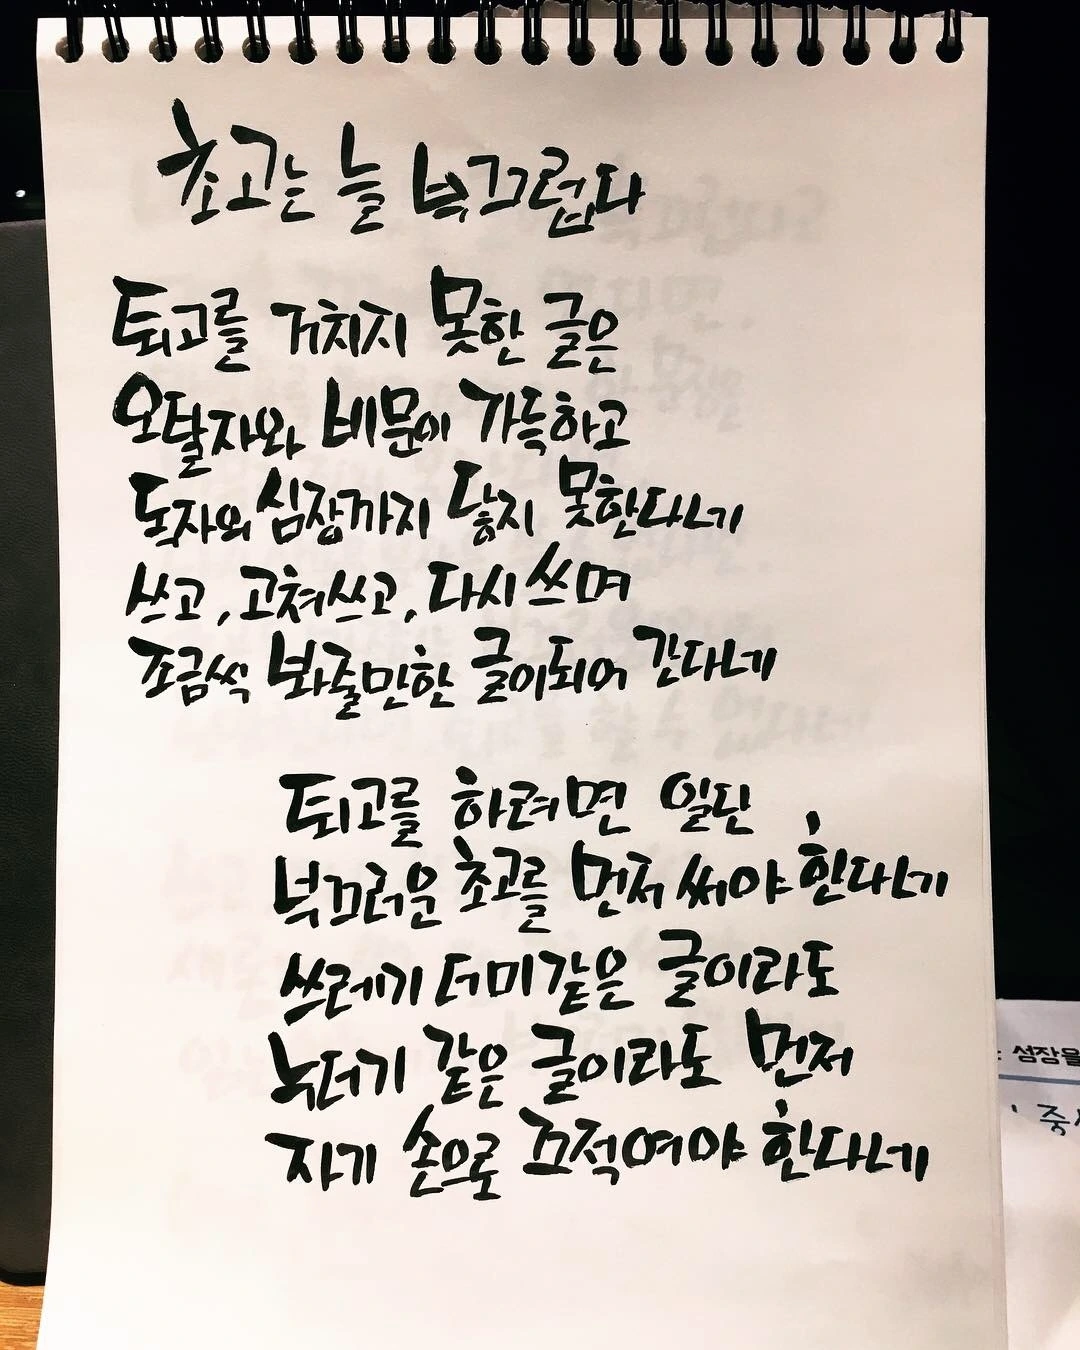 초고는 늘 부끄럽다
퇴고를 거치지 못한 글은
오탈자와 비문이 가득하고
독자의 심장까지 닿지 못한다네
쓰고, 고쳐쓰고, 다시 쓰며
조금씩 봐줄만한 글이되어 간다네
퇴고를 하려면 일단
부끄러운 초고를 먼저 써야 한다네
쓰레기 더미같은 글이라도
누더기 같은 글이라도 먼저
자기 손으로 끄적여야 한다네
성장을